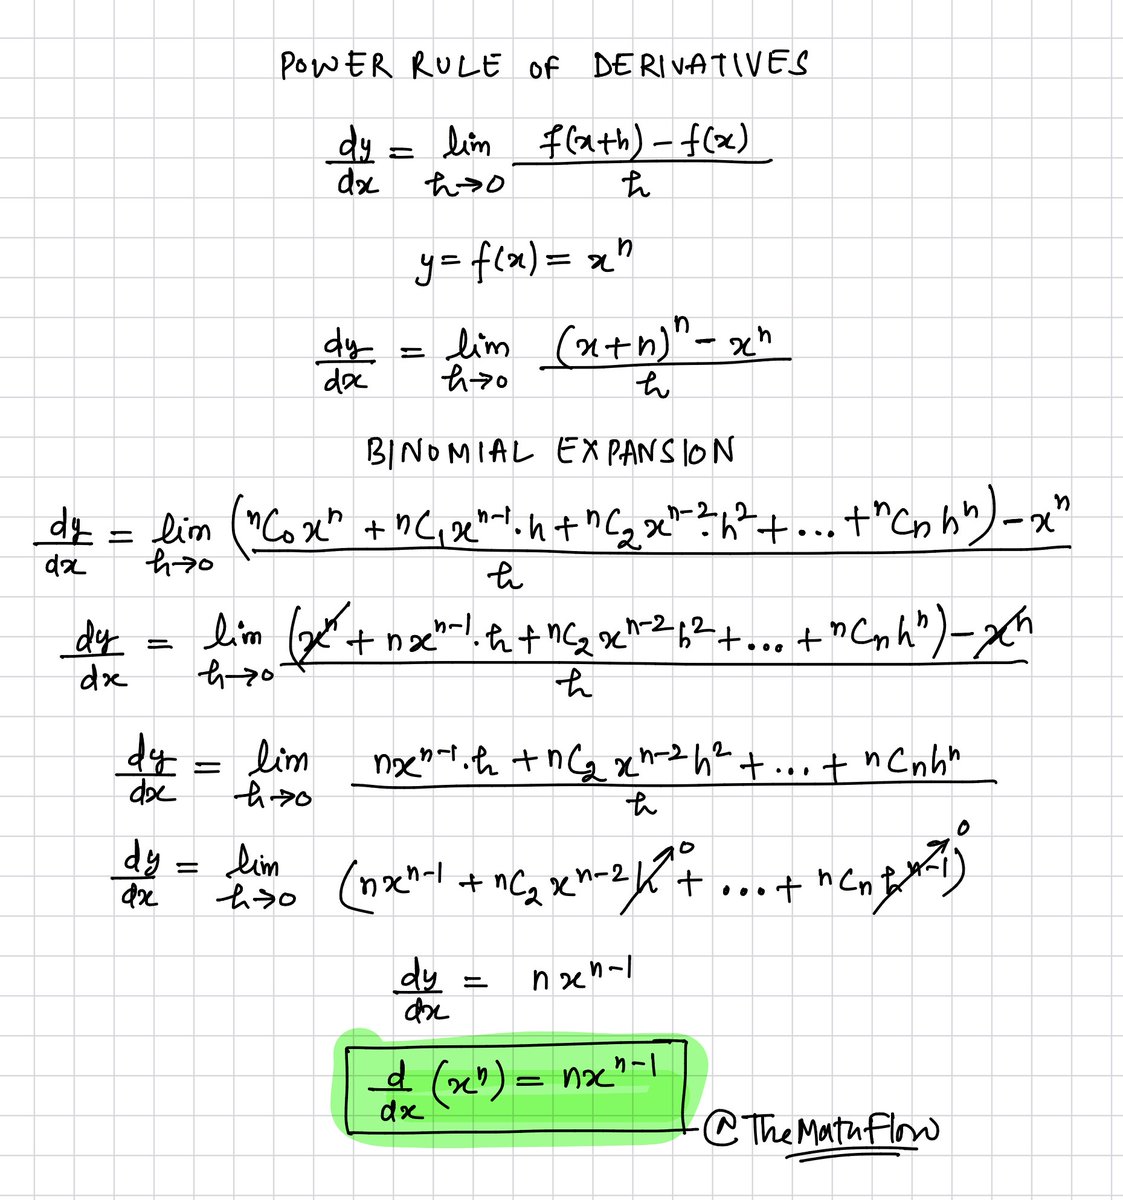 POWER RULE OF DERIVATIVES
dy/dx = lim h→0 (f(x+h) − f(x))/h
y = f(x) = xⁿ
dy/dx = lim h→0 ((x+h)ⁿ − xⁿ)/h
BINOMIAL EXPANSION
dy/dx = lim h→0 ((ⁿC₀xⁿ + ⁿC₁xⁿ⁻¹·h + ⁿC₂xⁿ⁻²·h² + ... + ⁿCₙhⁿ) − xⁿ)/h
dy/dx = lim h→0 ((xⁿ + nxⁿ⁻¹·h + ⁿC₂xⁿ⁻²h² + ... + ⁿCₙhⁿ) − xⁿ)/h
dy/dx = lim h→0 (nxⁿ⁻¹·h + ⁿC₂xⁿ⁻²h² + ... + ⁿCₙhⁿ)/h
dy/dx = lim h→0 (nxⁿ⁻¹ + ⁿC₂xⁿ⁻²h↗0 + ... + ⁿCₙhⁿ⁻¹↗0)
dy/dx = nxⁿ⁻¹
d/dx (xⁿ) = nxⁿ⁻¹
@TheMathFlow